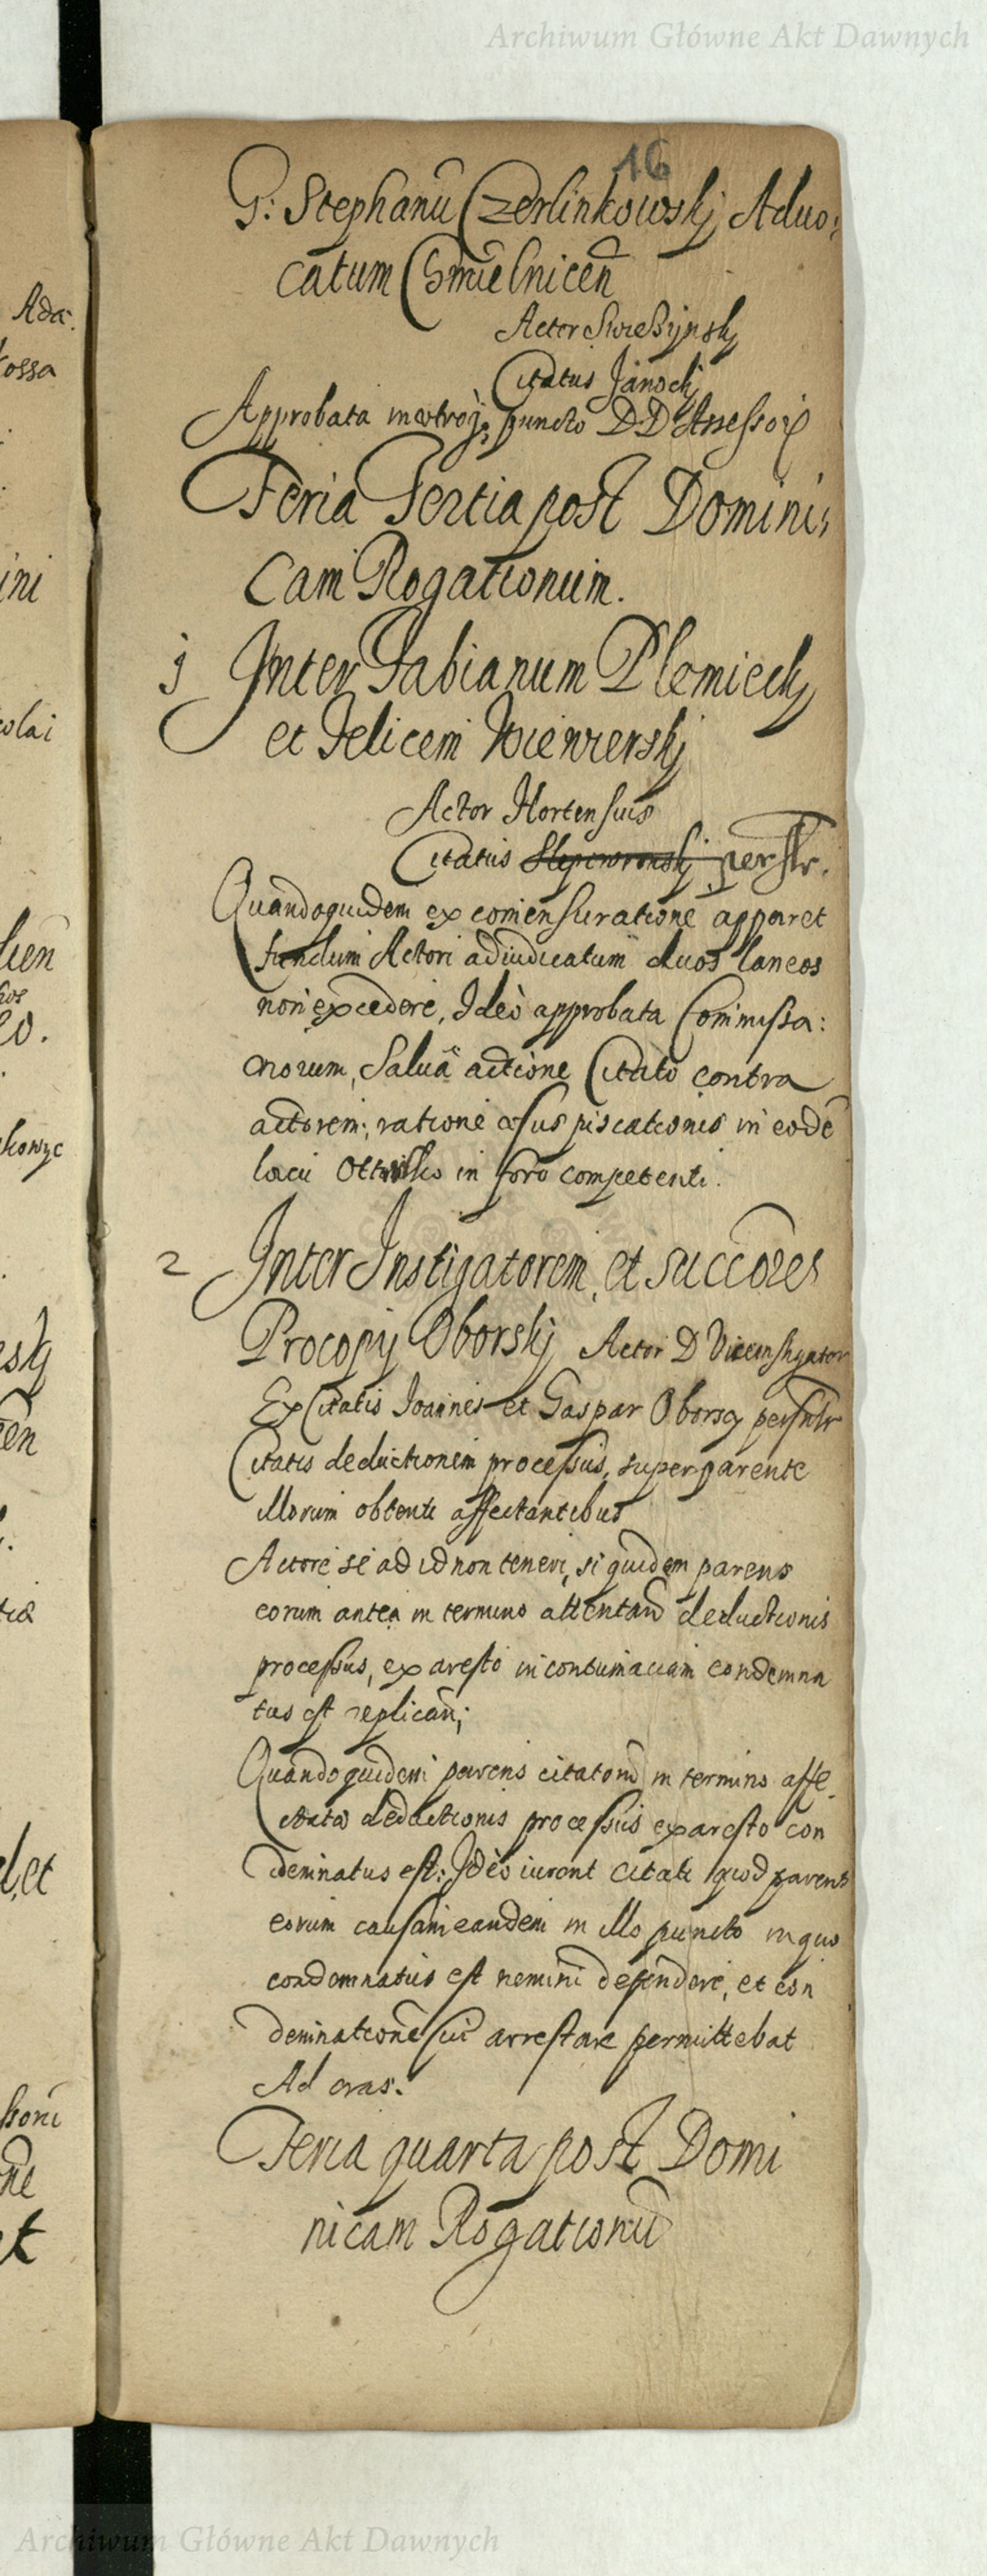 Archiwum Główne Akt Dawnych
16
G: Stephanū Czerlinkowskj Aduo:
catum Chmielnicen̄
Actor Swieszynskj
Citatus Janockj
Approbata puncto DD Assessor
Feria Tertia post Domini,
cam Rogationum.
1 Inter Fabianum Plemieckj
et Felicem Wiewierskj
Actor Hortensius
Citatus Slepowronskj per
Quandoquidem ex comensuratione apparet
fundum Actori adiudicatum duos laneos
non excedere, Ideò approbata Commissa:
riorum, Saluâ actione Citato contra
actorem; ratione usus piscationis in eodē
lacu in foro competenti.
2 Inter Instigatorem, et succores
Procopij Oborskj Actor D Viceinstigator
Ex Citatis Joannes et Gaspar Oborscy
Citatis deductionem processus, super parente
illorum obtenti affectantibus
Actore se ad id non teneri, siquidem parens
eorum antea in termino attentatae deductionis
processus, ex aresto in contumaciam condemna
tus est replicañ;
Quandoquidem parens citatorū in termino affe
ctatae deductionis processus ex aresto con
demnatus est: Ideò iurent citati quod parens
eorum causam eandem in illo puncto in quo
condemnatus est nemini defendere, et con
demnationē sui arrestare permittebat
Ad cras.
Feria quarta post Domi
nicam Rogationū
Ada:
kossa
ini
colai
lien
eo.
kowyc
eskj
en
el, et
ssorū
ne
et
Archiwum Główne Akt Dawnych